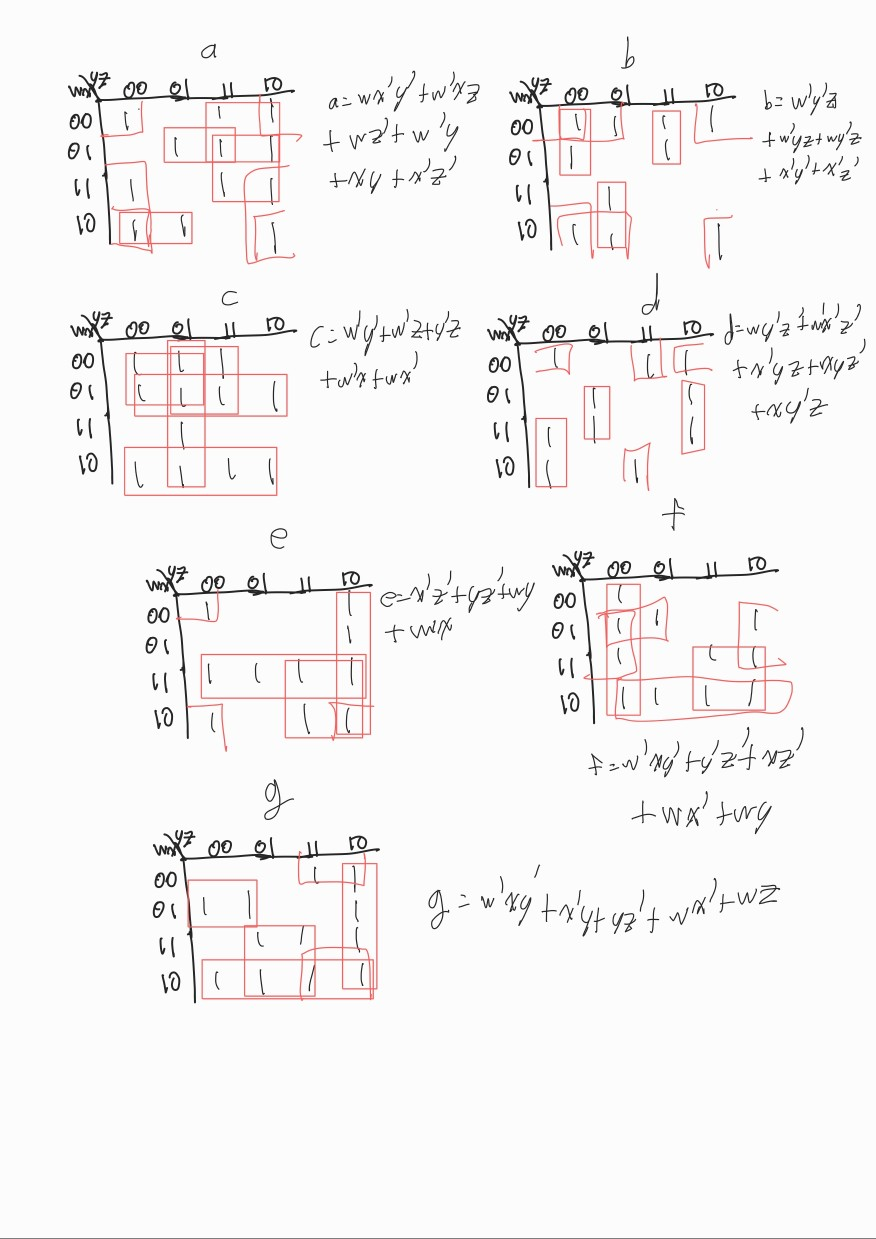 a
wx yz 00 01 11 10
00 1 1 1
01 1 1 1
11 1 1 1
10 1 1 1
a = wx'y' + w'xz
+ wz' + w'y
+ xy + x'z'
b
wx yz 00 01 11 10
00 1 1 1 1
01 1 1
11 1
10 1 1 1
b = w'y'z
+ w'yz + wy'z
+ x'y' + x'z'
c
wx yz 00 01 11 10
00 1 1 1
01 1 1 1 1
11 1
10 1 1 1 1
c = w'y' + w'z + y'z
+ w'x + wx'
d
wx yz 00 01 11 10
00 1 1 1
01 1 1
11 1 1 1
10 1 1
d = wy'z' + wx'z'
+ x'yz + xyz'
+ xy'z
e
wx yz 00 01 11 10
00 1 1
01 1
11 1 1 1 1
10 1 1 1
e = x'z' + yz' + wy
+ wx
f
wx yz 00 01 11 10
00 1
01 1 1 1
11 1 1 1
10 1 1 1 1
f = w'xy' + y'z' + xz'
+ wx' + wy
g
wx yz 00 01 11 10
00 1 1
01 1 1 1
11 1 1 1
10 1 1 1 1
g = w'xy' + x'y + yz' + wx' + wz